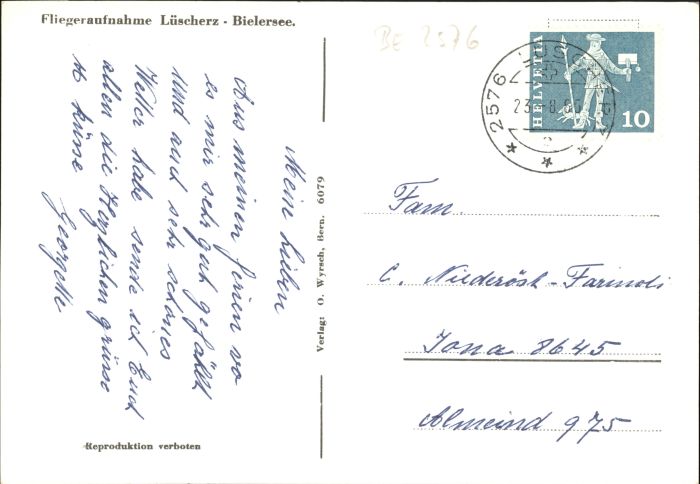 Fliegeraufnahme Lüscherz - Bielersee.
BE 2576
HELVETIA
10
2576 LÜSCHERZ
23.-8.66
Meine lieben
Aus meinen ferien wo
es mir sehr gut gefählt
und auch sehr schönes
Wetter habe sende ich Euch
allen die Herzlichen grüsse
u küsse
Georgette
Reproduktion verboten
Verlag: O. Wyrsch, Bern. 6079
Fam.
C. Niederöst-Farinoli
Jona 8645
Almeind 975